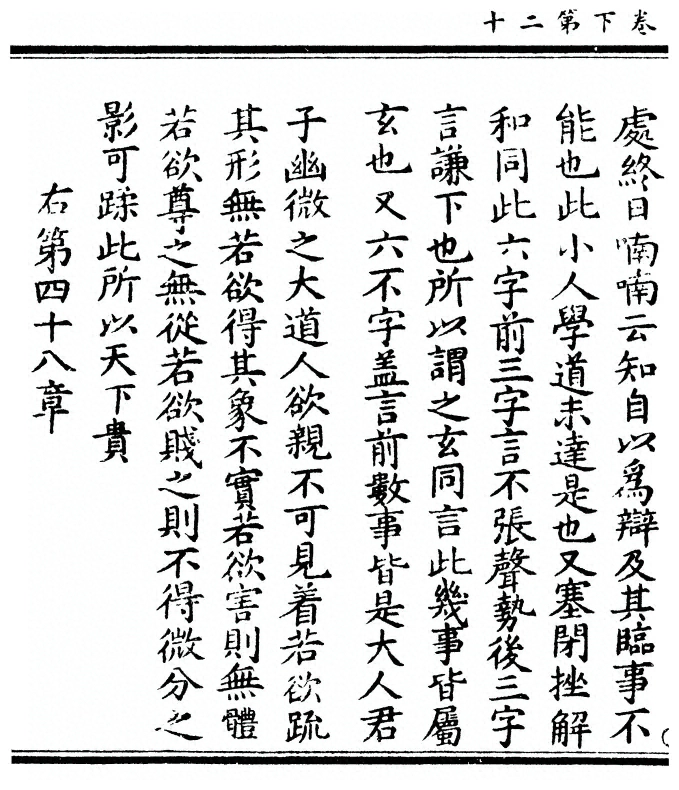 卷下第二十
處終日喃喃云知自以爲辯及其臨事不
能也此小人學道未達是也又塞閉挫解
和同此六字前三字言不張聲勢後三字
言謙下也所以謂之玄同言此幾事皆屬
玄也又六不字盖言前數事皆是大人君
子幽微之大道人欲親不可見着若欲疏
其形無若欲得其象不實若欲害則無體
若欲尊之無從若欲賤之則不得微分之
影可蹂此所以天下貴
右第四十八章